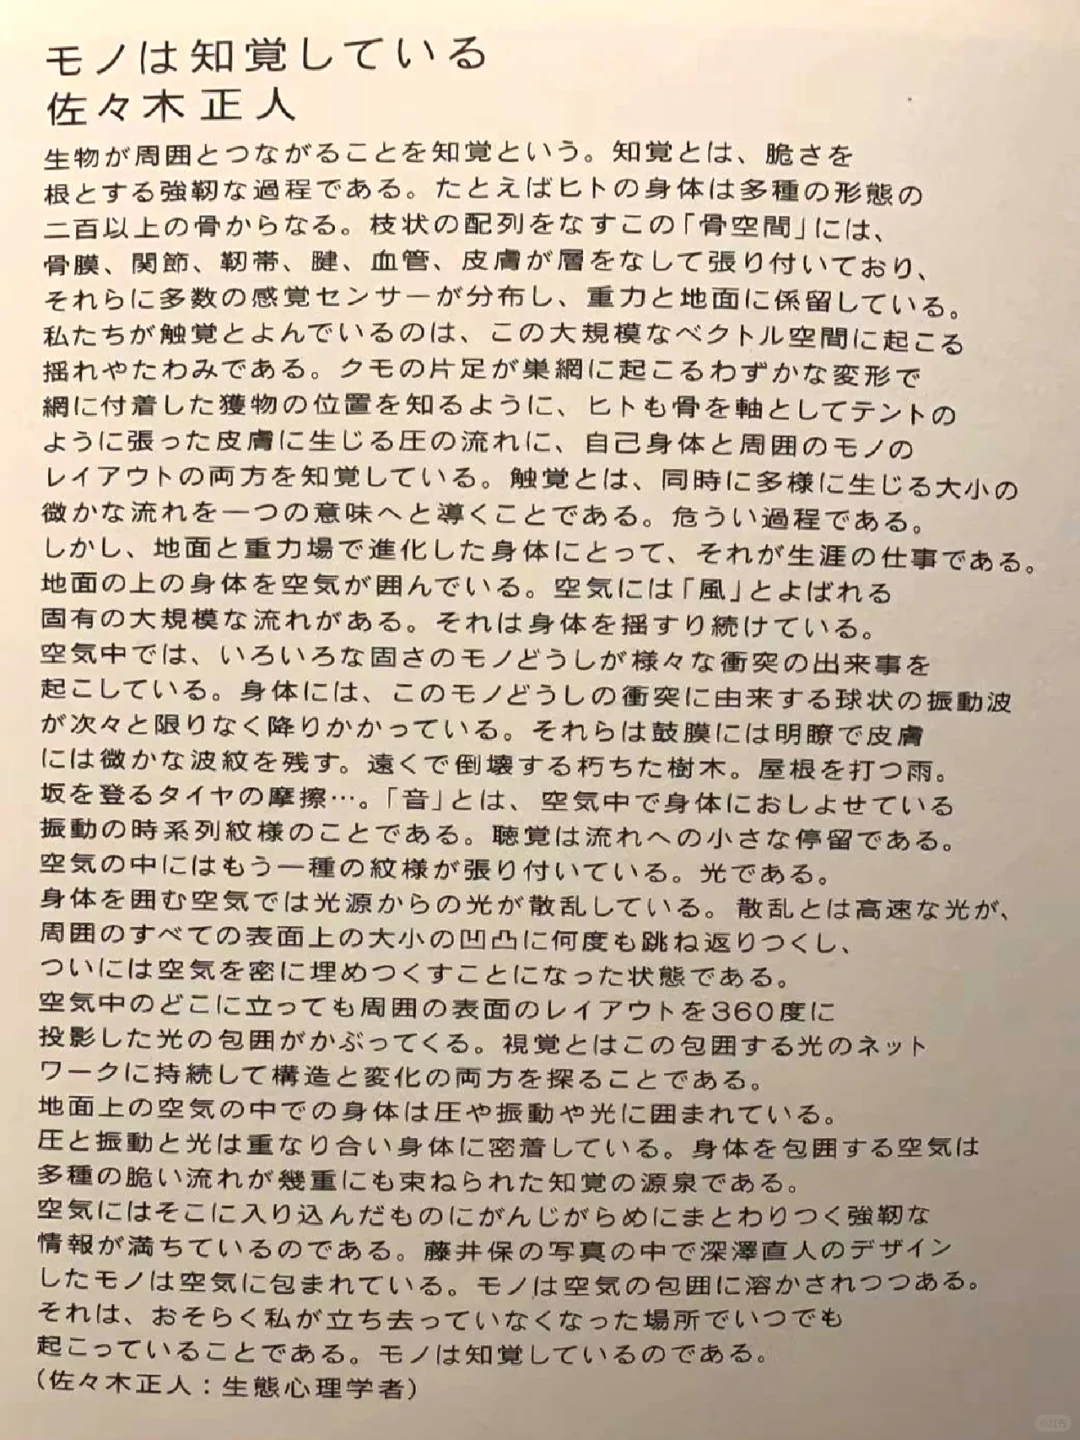 モノは知覚している
佐々木正人
生物が周囲とつながることを知覚という。知覚とは、脆さを
根とする強靭な過程である。たとえばヒトの身体は多種の形態の
二百以上の骨からなる。枝状の配列をなすこの「骨空間」には、
骨膜、関節、靭帯、腱、血管、皮膚が層をなして張り付いており、
それらに多数の感覚センサーが分布し、重力と地面に係留している。
私たちが触覚とよんでいるのは、この大規模なベクトル空間に起こる
揺れやたわみである。クモの片足が巣網に起こるわずかな変形で
網に付着した獲物の位置を知るように、ヒトも骨を軸としてテントの
ように張った皮膚に生じる圧の流れに、自己身体と周囲のモノの
レイアウトの両方を知覚している。触覚とは、同時に多様に生じる大小の
微かな流れを一つの意味へと導くことである。危うい過程である。
しかし、地面と重力場で進化した身体にとって、それが生涯の仕事である。
地面の上の身体を空気が囲んでいる。空気には「風」とよばれる
固有の大規模な流れがある。それは身体を揺すり続けている。
空気中では、いろいろな固さのモノどうしが様々な衝突の出来事を
起こしている。身体には、このモノどうしの衝突に由来する球状の振動波
が次々と限りなく降りかかっている。それらは鼓膜には明瞭で皮膚
には微かな波紋を残す。遠くで倒壊する朽ちた樹木。屋根を打つ雨。
坂を登るタイヤの摩擦…。「音」とは、空気中で身体におしよせている
振動の時系列紋様のことである。聴覚は流れへの小さな停留である。
空気の中にはもう一種の紋様が張り付いている。光である。
身体を囲む空気では光源からの光が散乱している。散乱とは高速な光が、
周囲のすべての表面上の大小の凹凸に何度も跳ね返りつくし、
ついには空気を密に埋めつくすことになった状態である。
空気中のどこに立っても周囲の表面のレイアウトを360度に
投影した光の包囲がかぶってくる。視覚とはこの包囲する光のネット
ワークに持続して構造と変化の両方を探ることである。
地面上の空気の中での身体は圧や振動や光に囲まれている。
圧と振動と光は重なり合い身体に密着している。身体を包囲する空気は
多種の脆い流れが幾重にも束ねられた知覚の源泉である。
空気にはそこに入り込んだものにがんじがらめにまとわりつく強靭な
情報が満ちているのである。藤井保の写真の中で深澤直人のデザイン
したモノは空気に包まれている。モノは空気の包囲に溶かされつつある。
それは、おそらく私が立ち去っていなくなった場所でいつでも
起こっていることである。モノは知覚しているのである。
(佐々木正人：生態心理学者)